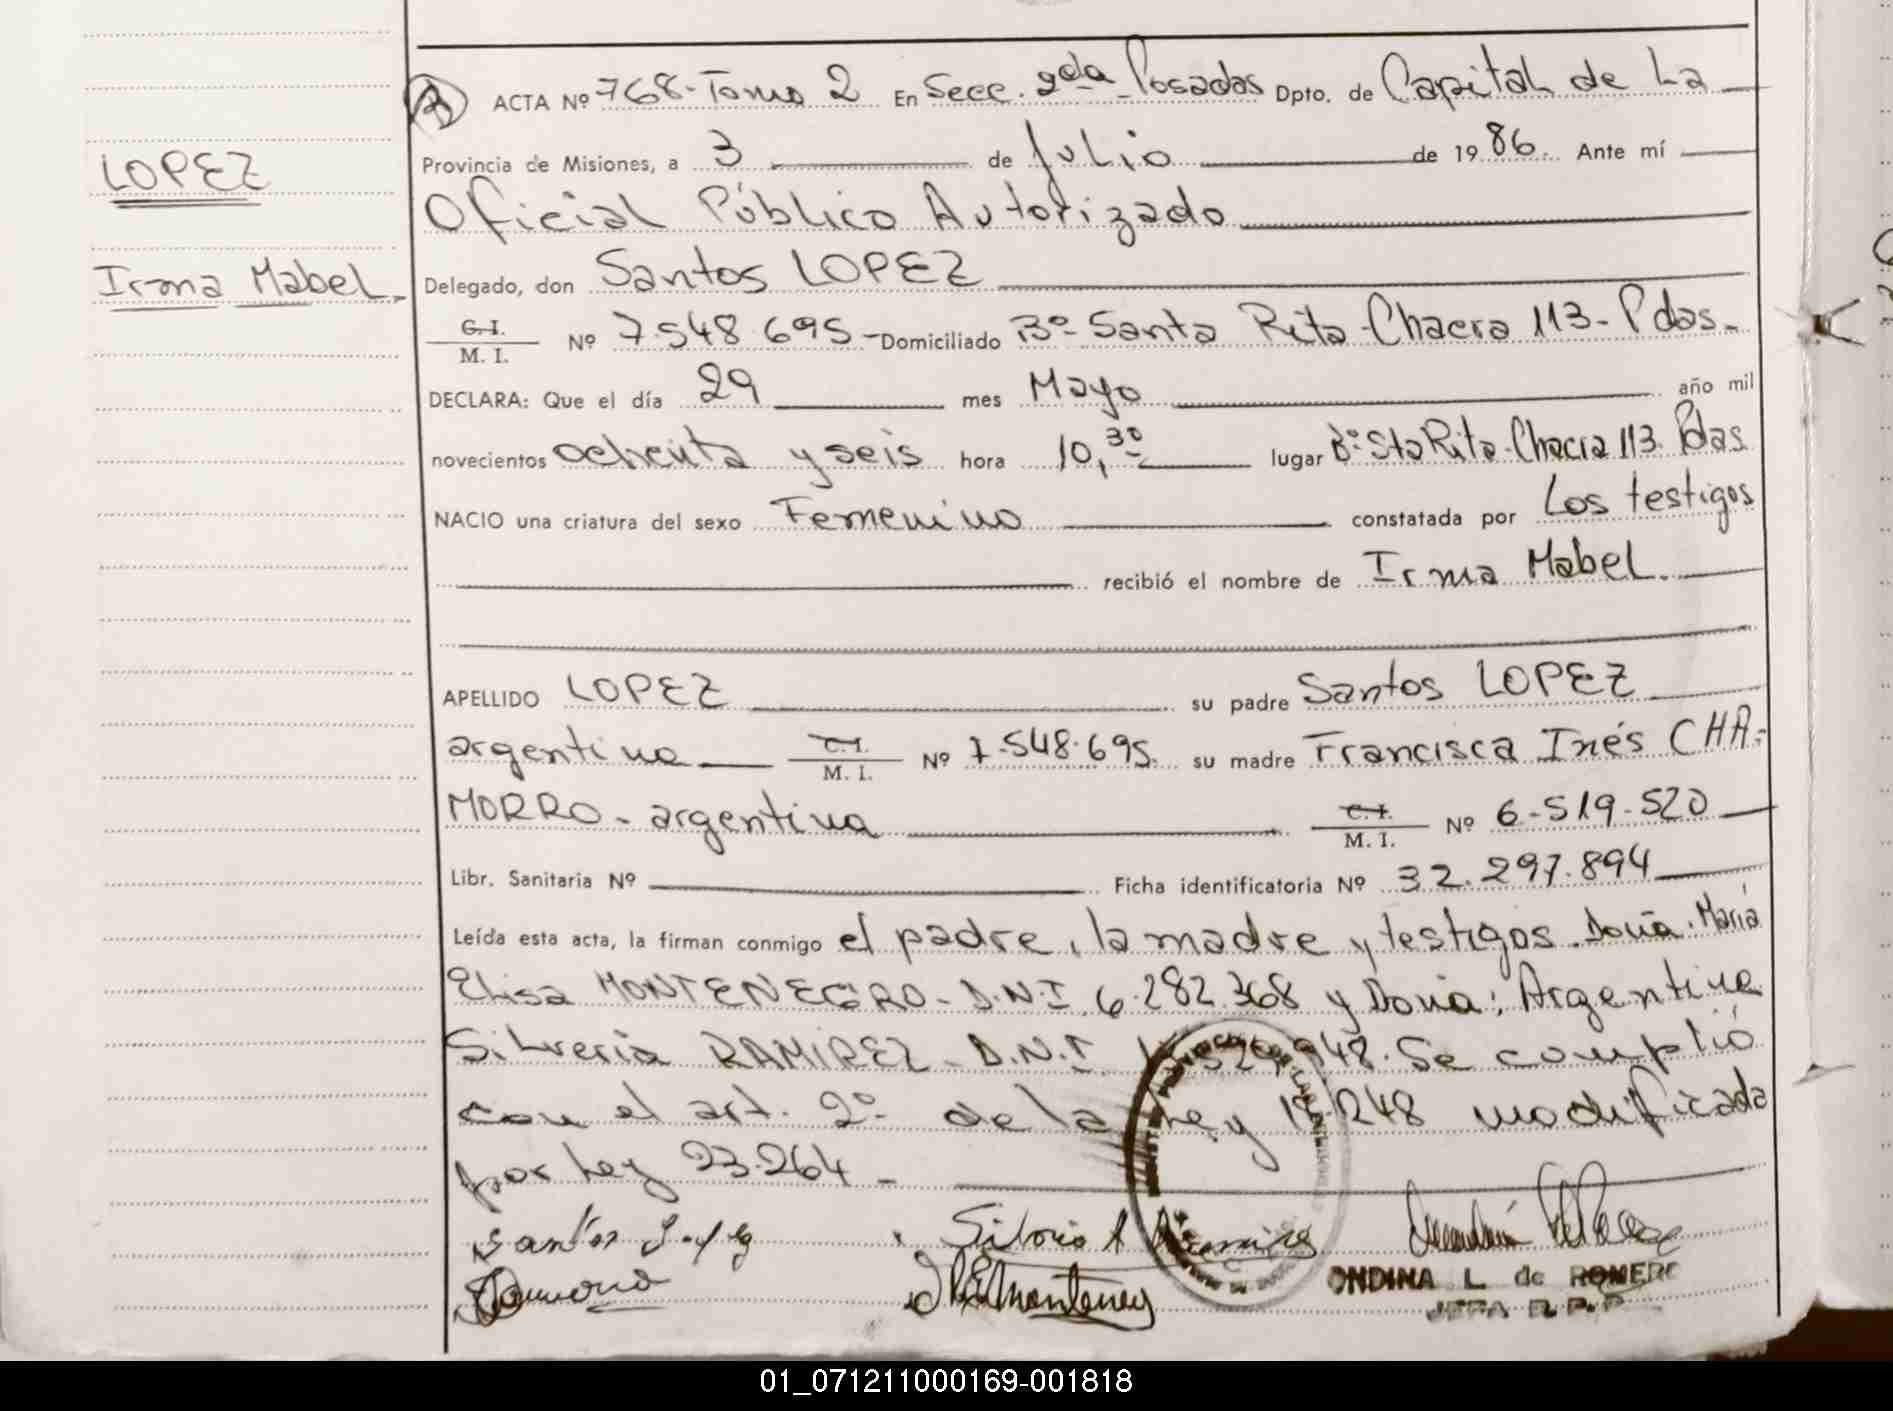 ACTA Nº 768-Tomo 2 En Secc. 2da Posadas Dpto. de Capital de La
Provincia de Misiones, a 3 de Julio de 1986. Ante mí
LOPEZ
Oficial Público Autorizado
Irma Mabel.
Delegado, don Santos LOPEZ
C.I.
M. I. Nº 7.548.695- Domiciliado Bº Santa Rita-Chacra 113- Pdas.
DECLARA: Que el día 29 mes Mayo año mil
novecientos ochenta y seis hora 10,30 lugar Bº Sta Rita-Chacra 113. Pdas
NACIO una criatura del sexo Femenino constatada por Los testigos
recibió el nombre de Irma Mabel.
APELLIDO LOPEZ su padre Santos LOPEZ
argentino C.I.
M. I. Nº 7.548.695. su madre Francisca Inés CHA-
MORRO - argentina C.I.
M. I. Nº 6.519.520
Libr. Sanitaria Nº Ficha identificatoria Nº 32.297.894
Leída esta acta, la firman conmigo el padre, la madre y testigos. Doña. María
Elisa MONTENEGRO- D.N.I. 6.282.368 y Doña: Argentina
Silveria RAMIREZ- D.N.I. 948. Se cumplió
con el art. 2º de la Ley 18.248 modificada
por Ley 23.264 -
Santos Lopez
ONDINA L. de ROMERO
JEFA R.P.P
01_071211000169-001818